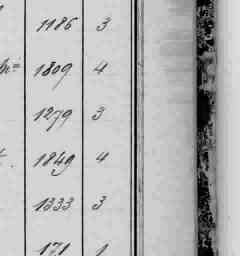 1186 3
1809 4
1279 3
1849 4
1333 3
171 1